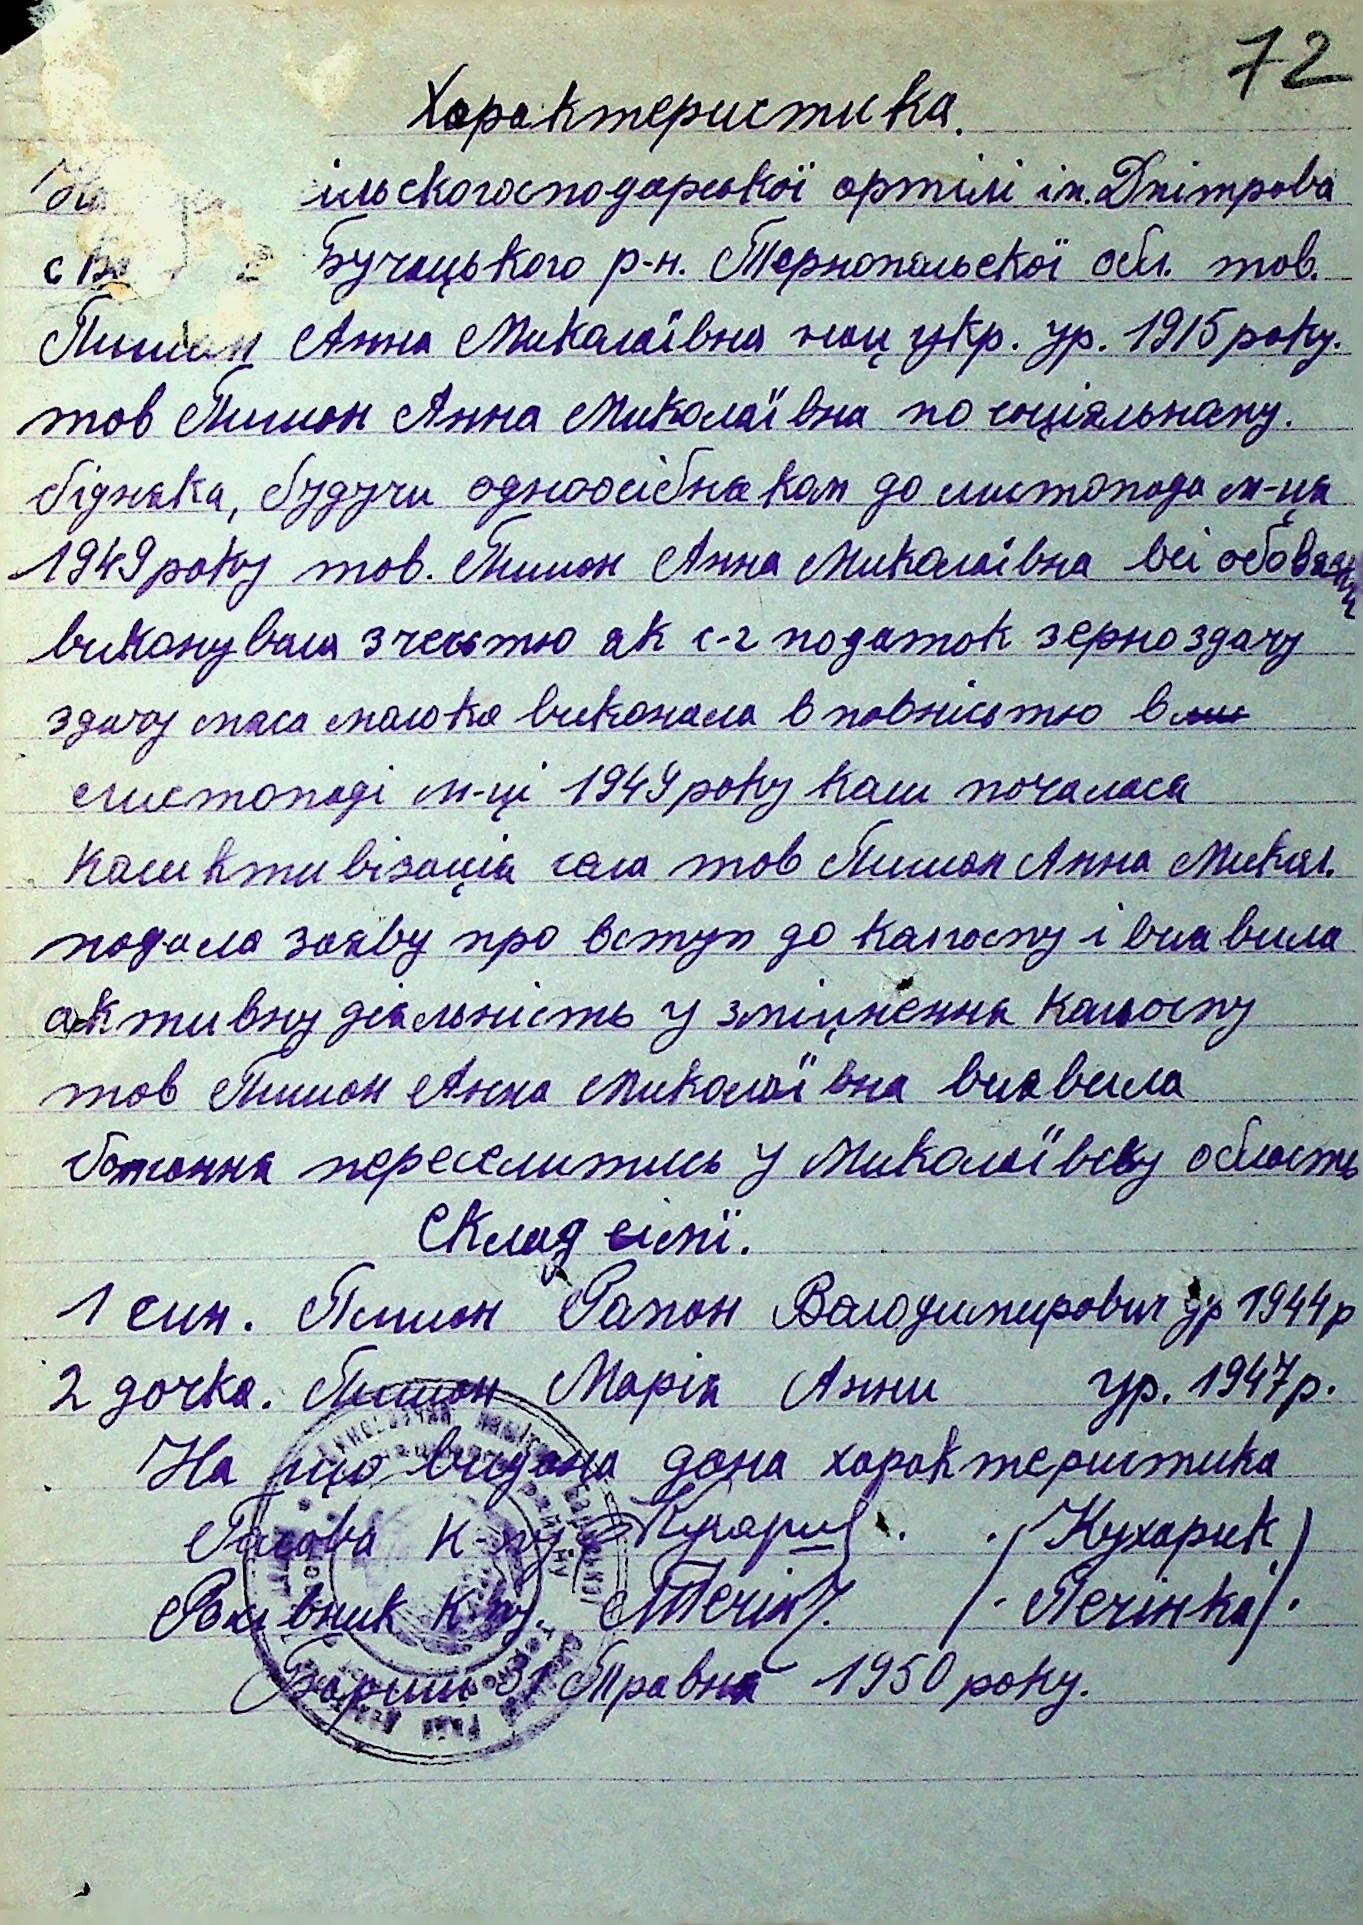 72
Характеристика.
На ільскогосподарської артілі ім. Дмітрова
с Бучацького р-н. Тернопольскої обл. тов.
Пилип Анна Миколаївна нац укр. ур. 1915 року.
тов Пилип Анна Миколаївна по соціяльному.
бідняка, будучи одноосібняком до листопада м-ця
1949 року тов. Пилип Анна Миколаївна всі обовязки
виконувала з честю як с-г податок зерноздачу
здачу мяса молока виконала в повністю в
листопаді м-ці 1949 року коли почалася
коликтивізація села тов Пилип Анна Микол.
подала заяву про вступ до колгоспу і виявила
активну діяльність у зміцнення колгоспу
тов Пилип Анна Миколаївна виявила
бажання переселитись у Миколаївску область
Склад сімї.
1 син. Пилип Роман Володимирович ур 1944 р
2 дочка. Пилип Марія Анни ур. 1947 р.
На що видана дана характеристика
Голова к-пу (Кухарик)
Рахівник к-пу. (Печінка).
Бариш 31 Травня 1950 року.